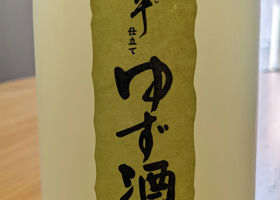 仕立て
ゆず酒